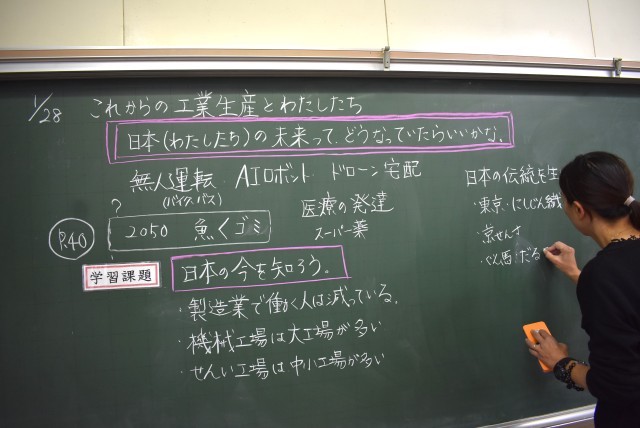 1/28
これからの工業生産とわたしたち
日本(わたしたち)の未来って、どうなっていたらいいかな。
無人運転 AIロボット ドローン宅配
(バイク、バス)
?
P.40
2050 魚くゴミ
医療の発達
スーパー薬
学習課題
日本の今を知ろう。
・製造業で働く人は減っている。
・機械工場は大工場が多い
・せんい工場は中小工場が多い
日本の伝統を生
・東京:にしじん織
・京せんす
・ぐん馬:だる